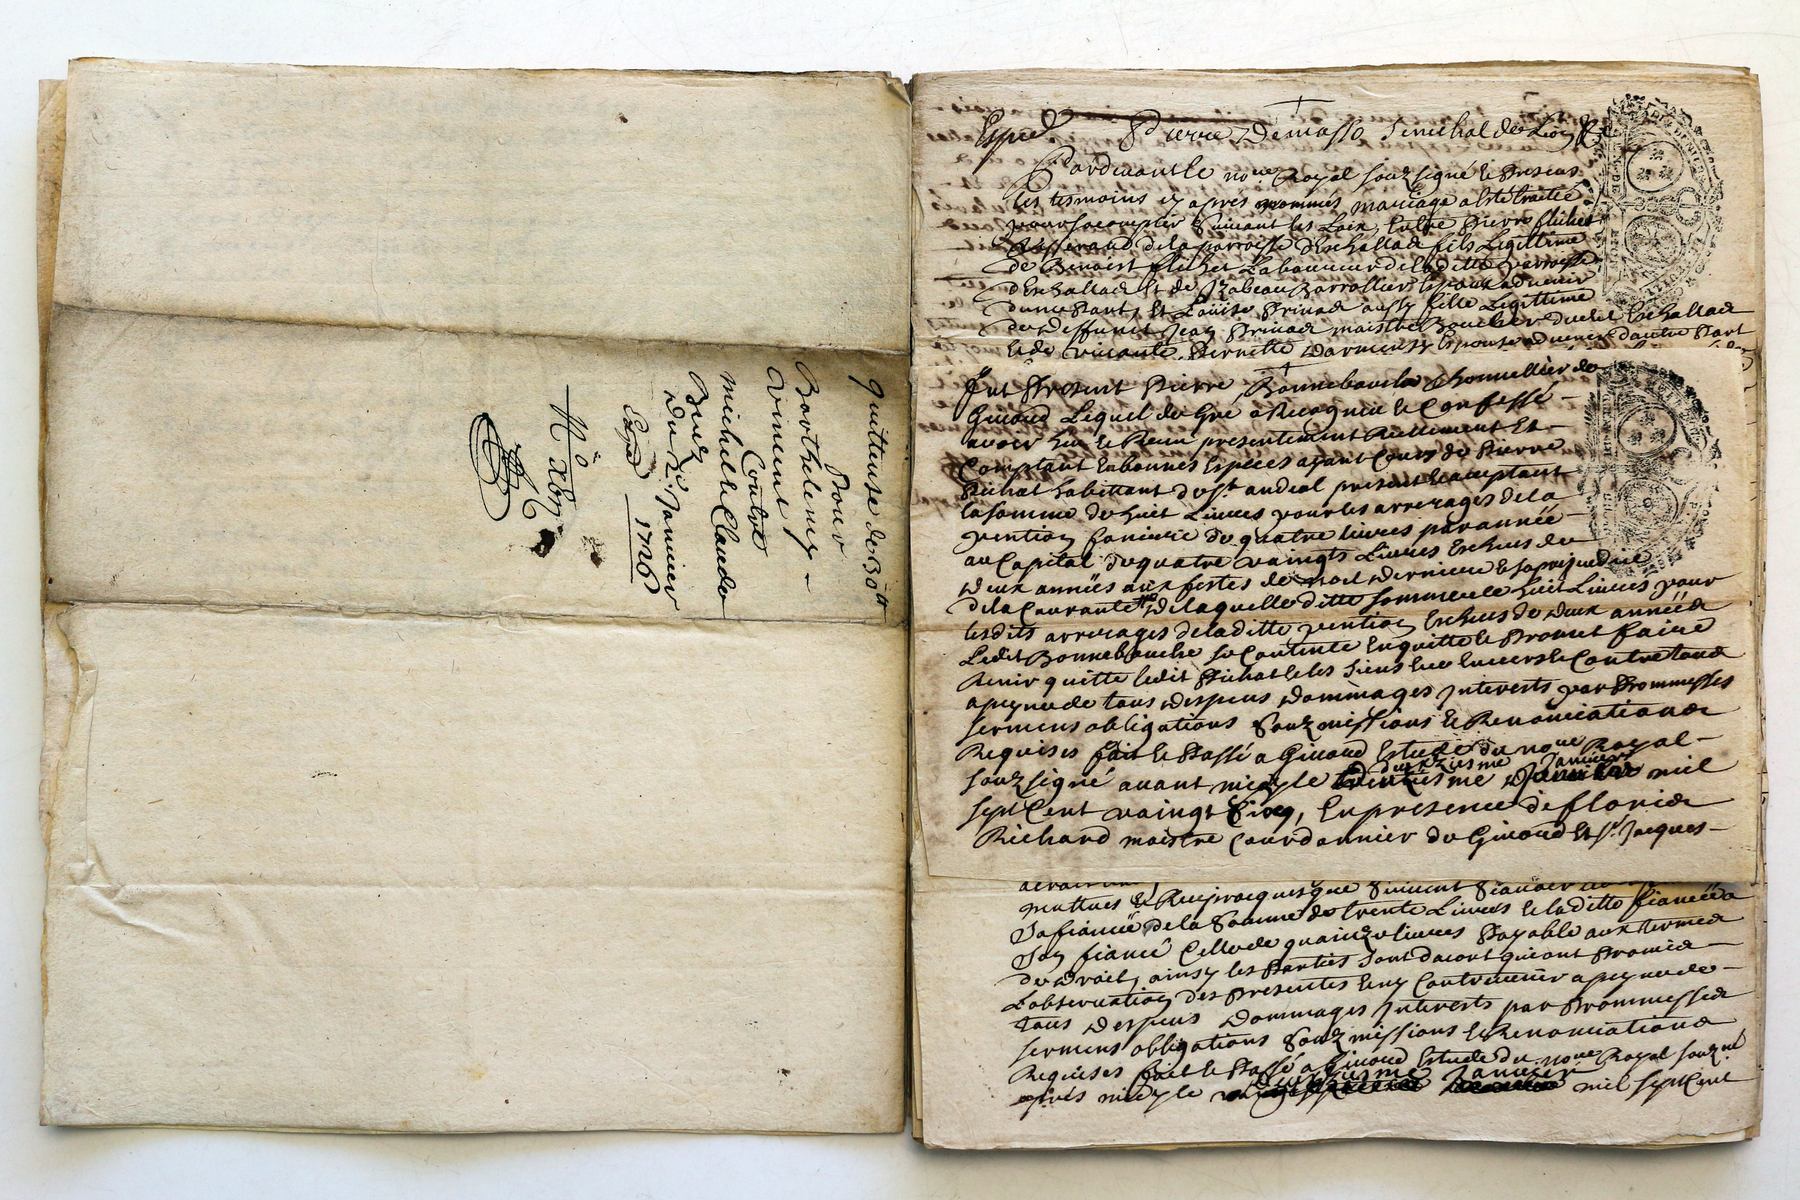 quittense de 30ᵗᵗ
Pour
Barthelemy
Vincent
Contre
michel et Claude
Bruz
Du  Janvier
Exped 1726
N°
Exped Pierre De masso Senechal de Lion
Pardevant le noʳᵉ Royal souz signé et Presens
les tesmoins cy après nommés mariage a été traitté
pour sacomplir Suivant les Loix, Entre Pierre flichet
Tisserand de la parroisse d'Eschallad fils Legittime
de Benoist flichet Laboureur de laditte parroisse
d'Eschallad et de Izabeau Barrollier Espoux advenir
dune Part, Et Louïse Privad aussy fille Legittime
de Deffunct Jean Privad maistre Boucher dudit Eschallad
et de vivante Pernette Espouse advenir dautre Part
fut Present Pierre Bonnebouche Thonnellier de
Givord Lequel de Gre a Recognue et Confessé
avoir heu et Receu presentement Reellement Et
Comptant En bonnes Especes ayant Cours de Pierre
Pichat habittant de Sᵗ andeol present et acceptant
la somme de huit Livres pour les arrerages de la
pention fonciere de quatre livres par année
au Capital de quatre vaingts Livres Escheus de
Deux années aux festes de noel Derniere et sans prejudice
de la Courante De laquelle ditte somme de huit Livres pour
lesdits arrerages de laditte pention Escheus de Deux années
Ledit Bonnebouche se Contente En quitte et Promet faire
tenir quitte ledit Pichat et les siens Envers et Contre tous
a peyne de tous Despens Dommages Interests par Prommesses
sermens obligations Souzmissions et Renonciations
Requises fait et Passé a Givord Estude du noʳᵉ Royal
souz signé avant midy le Janvier mil
sept Cent vaingt Cinq, En presence de florid
Richard maistre Courdonnier de Givord Et Sʳ Jacques
mutuel et Reciproque
Sa fiancée de la Somme de trente Livres et laditte fiancée a
Son fiancé Celle de quainze livres Payable aux termes
de Droit, ainsy les Parties sont dacort qui ont Promis
Lobservation des Presentes Et ny Contrevenir a peyne de
tous Despens Dommages Interests par Prommesses
sermens obligations Souzmissions et Renonciations
Requises fait et Passé a Givord Estude du noʳᵉ Royal souz né
après midy le Janvier mil sept Cent